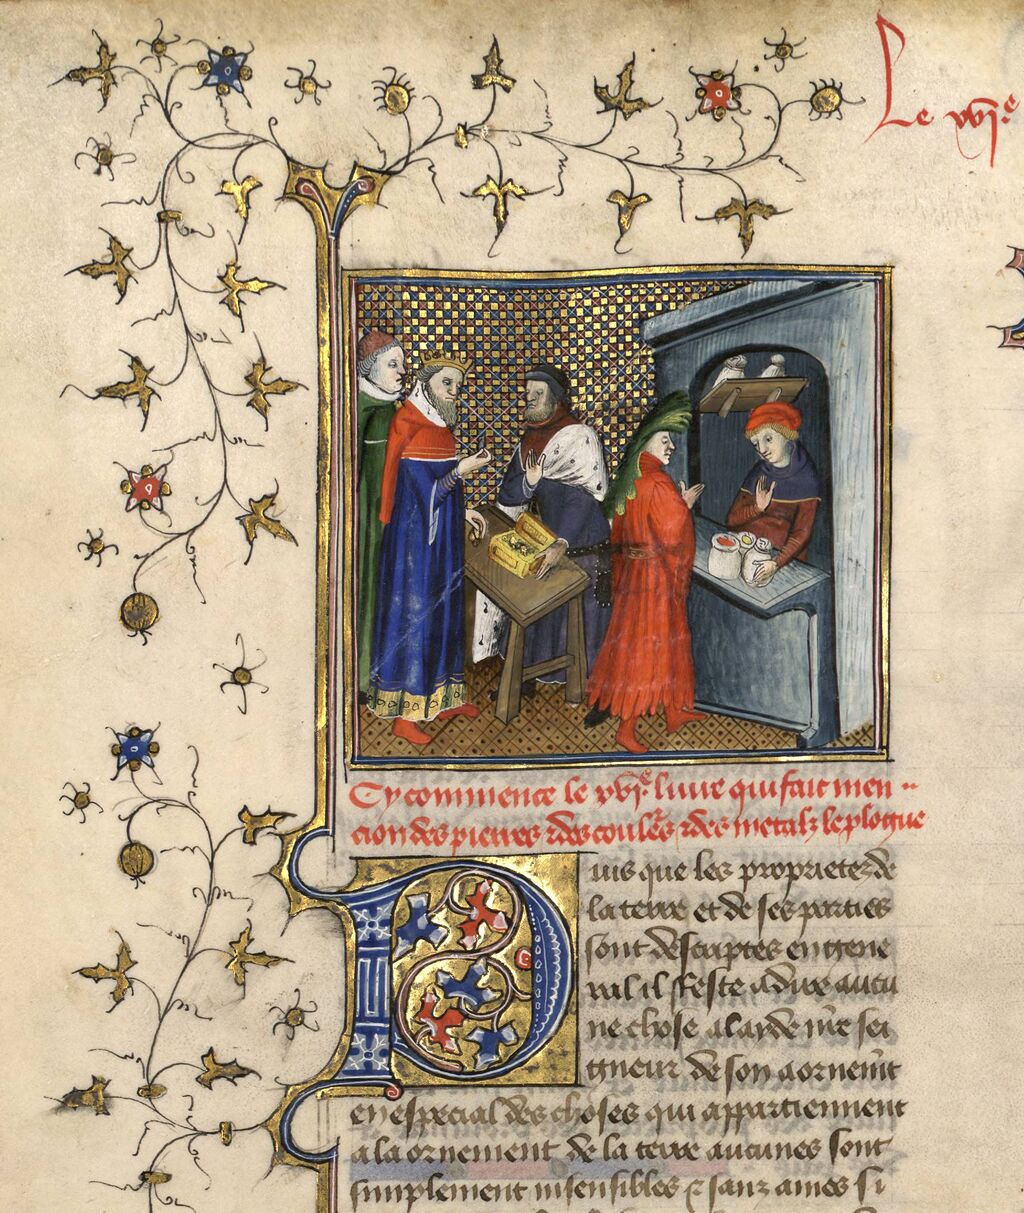 Le xvi.e
Cy commence le xvi.e liure qui fait men
cion des pierres ⁊ des coulers ⁊ des metalz le plogue
Puis que les proprietez de
la terre et de ses parties
sont descriptes en gene
ral il sreste a dire aucu
ne chose a layde nr̃e sei
gneur de son aornemt̃
en especial des choses qui appartiennent
a la ornement de la terre aucunes sont
simplement insensibles ⁊ sanz ames si